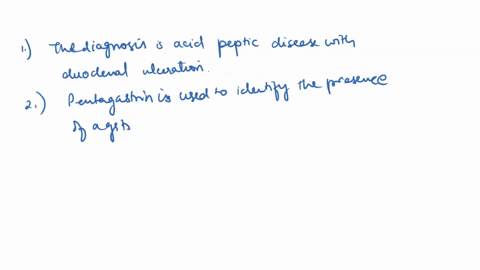 1.) The diagnosis is acid peptic disease with
duodenal ulceration.
2.) Pentagastrin is used to identify the presence
of